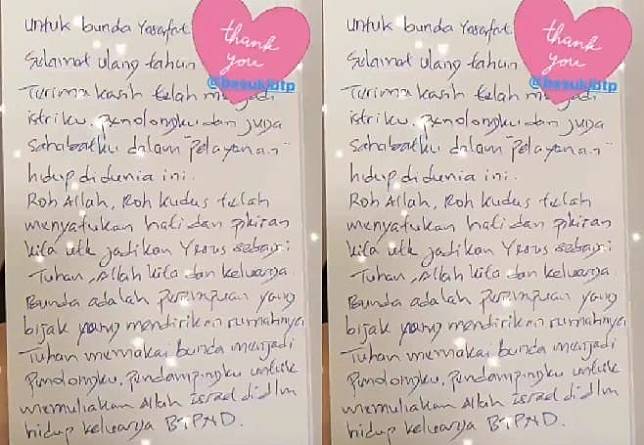 untuk bunda Yosafat
thank you
Selamat ulang tahun
@basukibtp
Terima kasih telah menjadi
istriku, penolongku dan juga
sahabatku dalam "pelayanan"
hidup didunia ini.
Roh Allah, Roh kudus telah
menyatukan hati dan pikiran
kita utk jadikan Yesus sebagai
Tuhan, Allah kita dan keluarga
Bunda adalah perempuan yang
bijak yang mendirikan rumahnya
Tuhan memakai bunda menjadi
Penolongku, pendampingku untuk
memuliakan Allah Israel didlm
hidup keluarga BTPND.
untuk bunda Yosafat
thank you
Selamat ulang tahun
@basukibtp
Terima kasih telah menjadi
istriku, penolongku dan juga
sahabatku dalam "pelayanan"
hidup didunia ini.
Roh Allah, Roh kudus telah
menyatukan hati dan pikiran
kita utk jadikan Yesus sebagai
Tuhan, Allah kita dan keluarga
Bunda adalah perempuan yang
bijak yang mendirikan rumahnya
Tuhan memakai bunda menjadi
Penolongku, pendampingku untuk
memuliakan Allah Israel didlm
hidup keluarga BTPND.